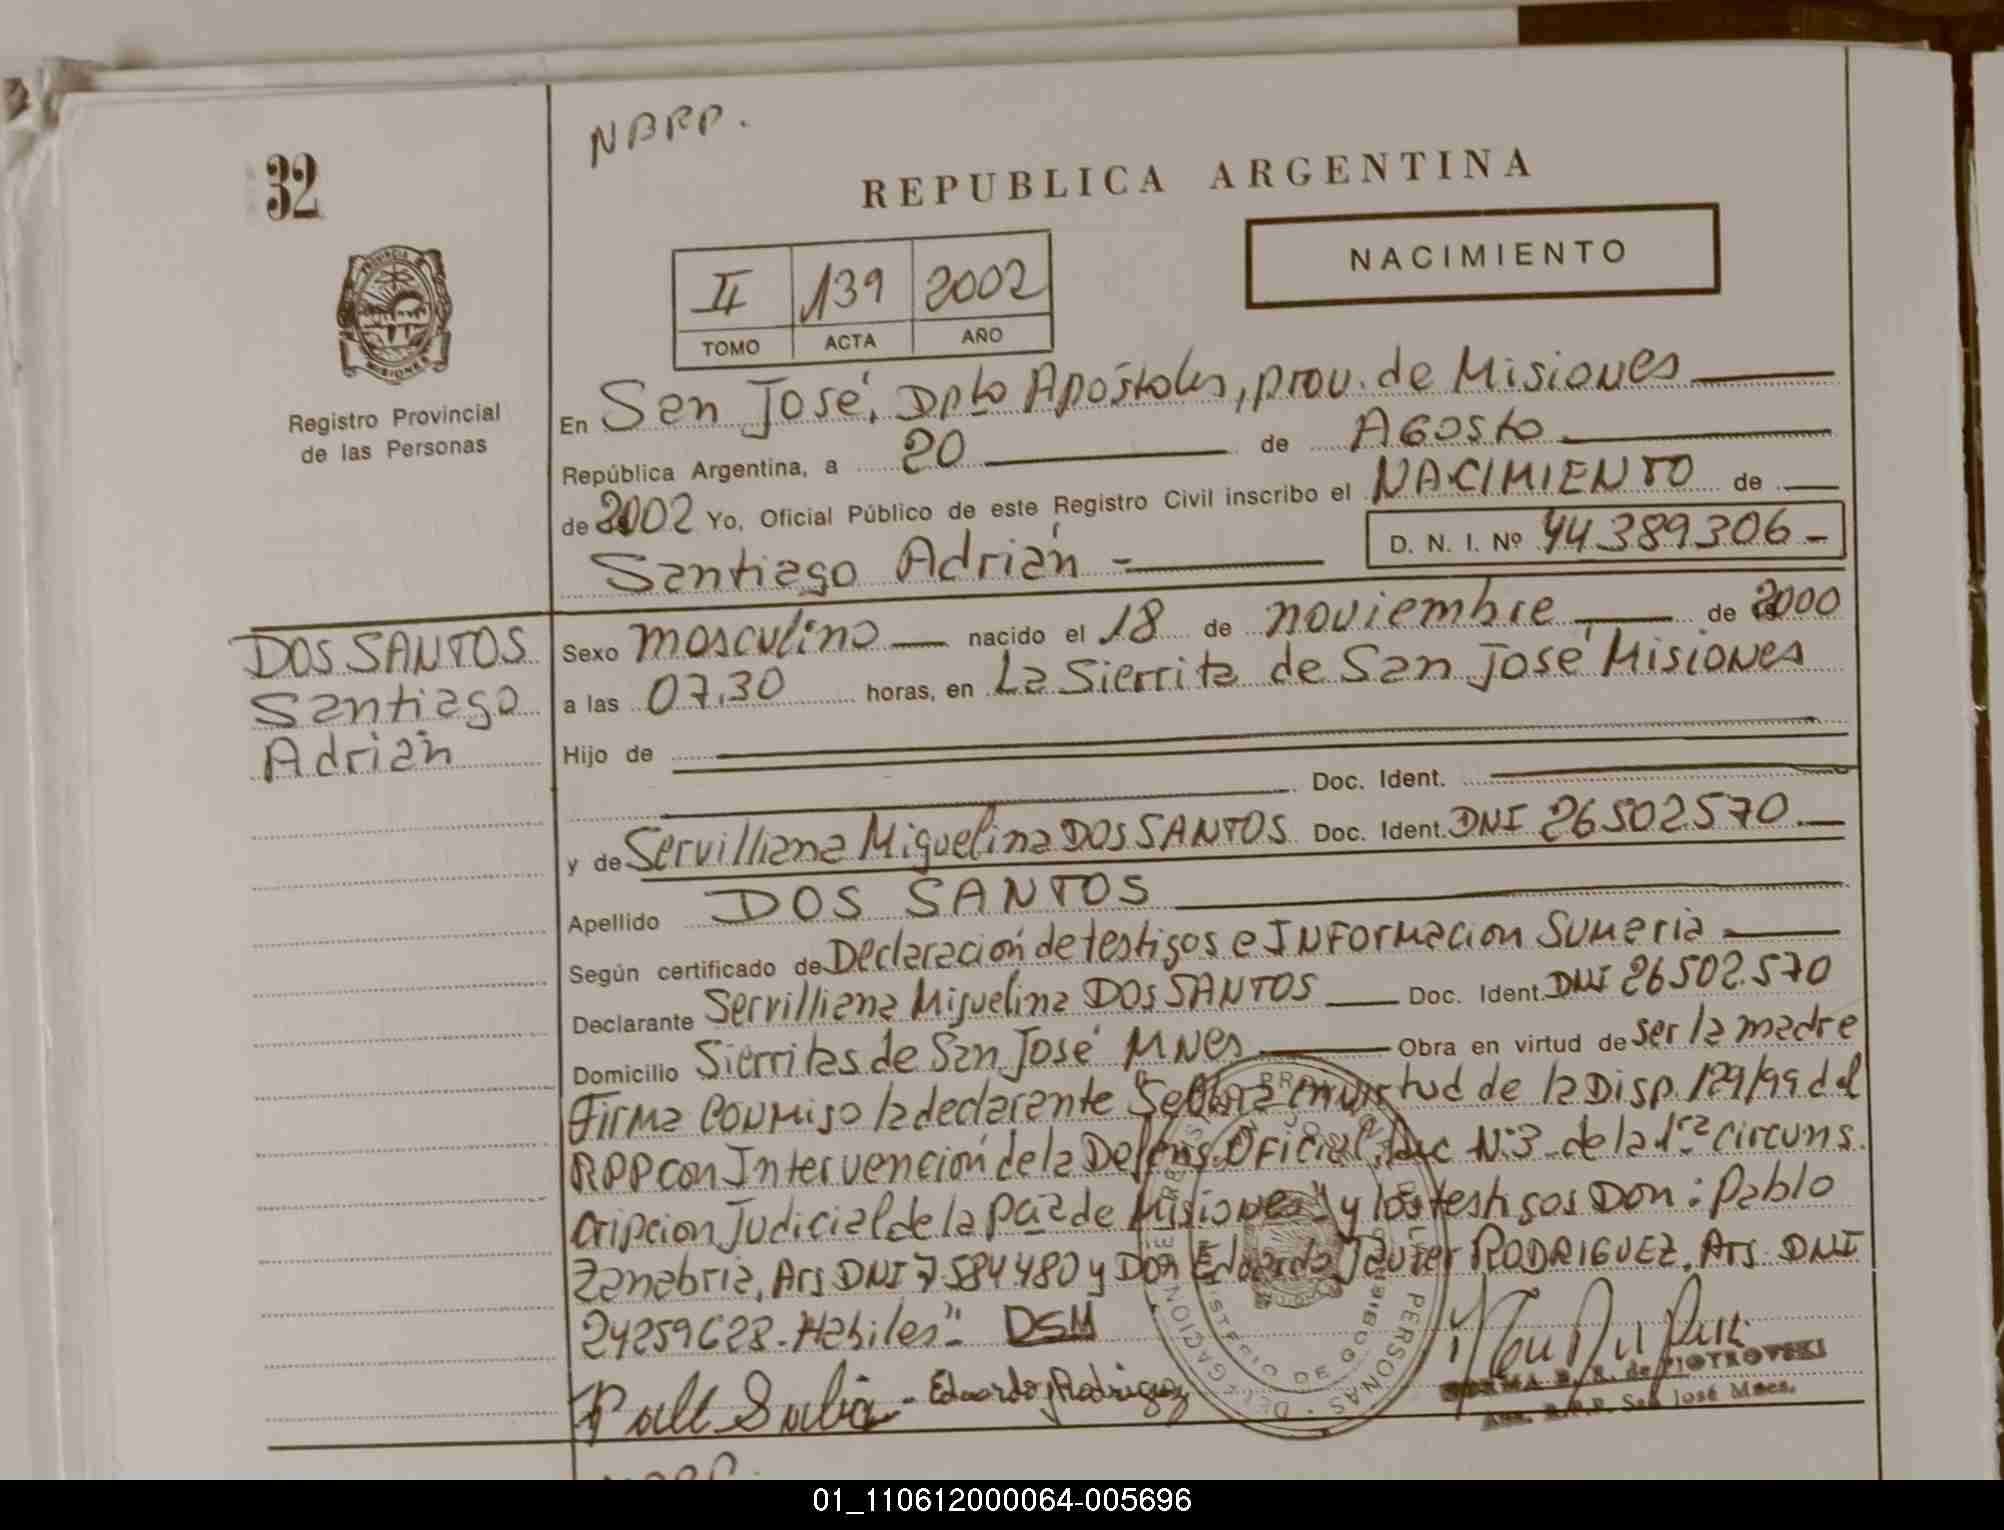 NBRP.
32
REPUBLICA ARGENTINA
NACIMIENTO
II 139 2002
TOMO ACTA AÑO
PROVINCIA DE
MISIONES
Registro Provincial
de las Personas
En San José, Dpto Apóstoles, prov. de Misiones
República Argentina, a 20 de Agosto
de 2002 Yo, Oficial Público de este Registro Civil inscribo el NACIMIENTO de
Santiago Adrián = D. N. I. Nº 44389306-
DOS SANTOS
Santiago
Adrián
Sexo masculino nacido el 18 de noviembre de 2000
a las 07,30 horas, en La Sierrita de San José Misiones
Hijo de
Doc. Ident.
y de Servilliana Miguelina DOS SANTOS Doc. Ident. DNI 26502570
Apellido DOS SANTOS
Según certificado de Declaración de testigos e INFormacion Sumaria
Declarante Servilliana Miguelina DOS SANTOS Doc. Ident. DNI 26502.570
Domicilio Sierritas de San José MNes Obra en virtud de ser la madre
Firma conmigo la declarante "Se labra en virtud de la Disp. 129/99 del
RPP con Intervención de la Defens. Oficial, N:3 de la 1ra circuns.
cripcion Judicial de la Pcia de Misiones" y los testigos Don: Pablo
Zanabria, Arg DNI 7584480 y Don Eduardo Javier RODRIGUEZ, Arg. DNI
24259628-Habiles"- DSM
Eduardo J Rodriguez
NORMA B. R. de PIOTROVSKI
R.P.P. San José Mnes.
01_110612000064-005696